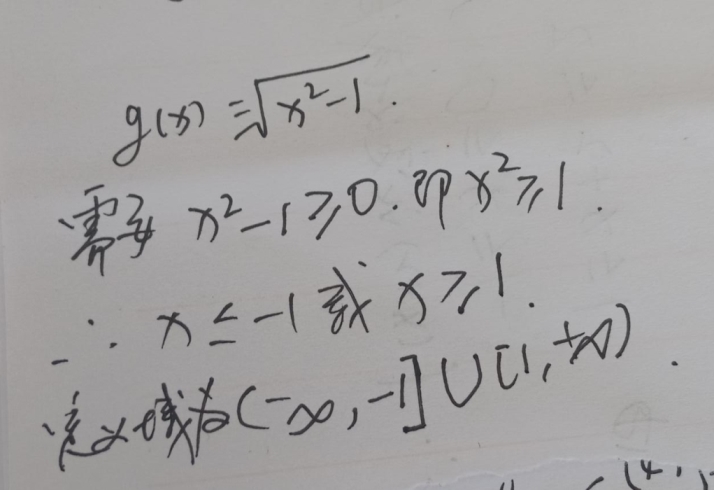 g(x) = √(x²-1).
需要 x²-1≥0. 即 x²≥1.
∴ x≤-1 或 x≥1.
定义域为(-∞,-1]∪[1,+∞).